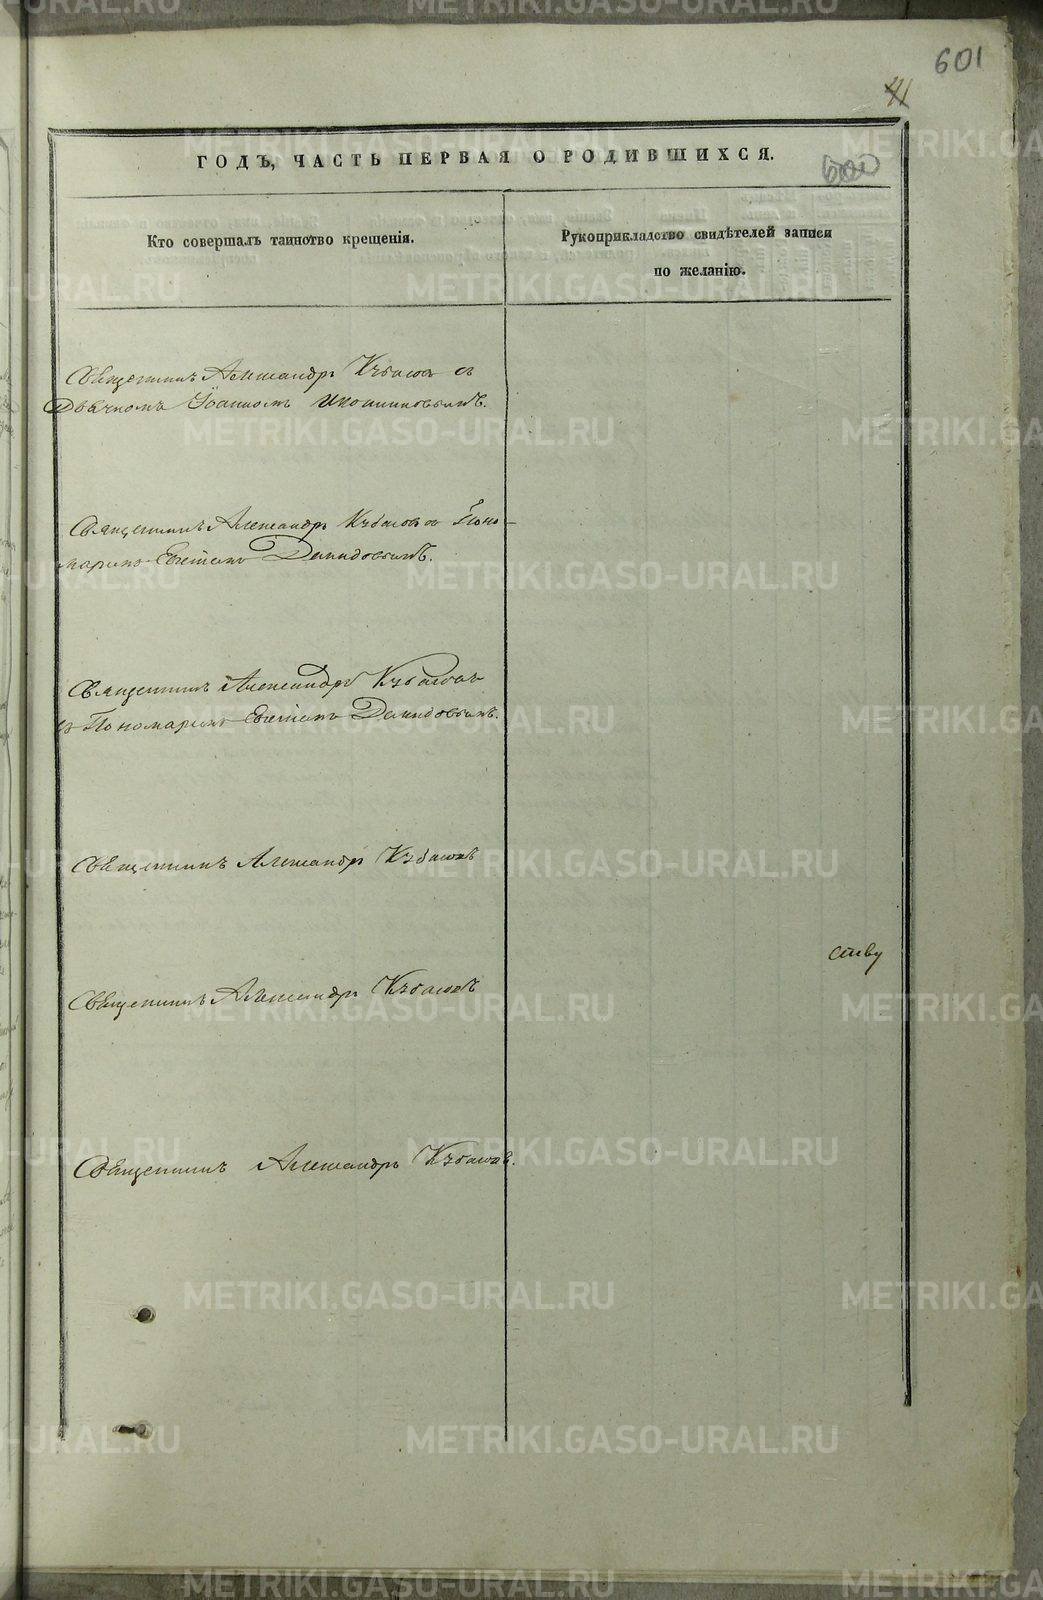 601
41
ГОДЪ, ЧАСТЬ ПЕРВАЯ О РОДИВШИХСЯ.
600
Кто совершалъ таинство крещенія.
Рукоприкладство свидѣтелей записи
по желанію.
Священникъ Александръ съ
Дьячкомъ Іоанномъ Иконниковымъ.
Священникъ Александръ Поно-
маремъ Евгеніемъ Давидовымъ.
Священникъ Александръ
съ Пономаремъ Евгеніемъ Давидовымъ.
Священникъ Александръ
ству
Священникъ Александръ
Священникъ Александръ
METRIKI.GASO-URAL.RU